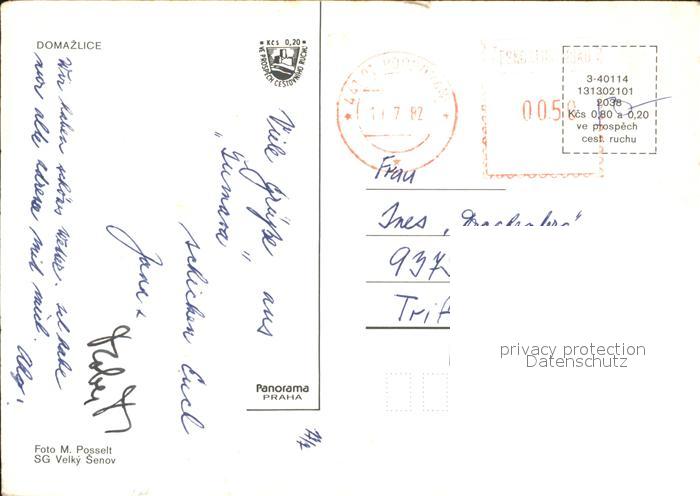 DOMAŽLICE
Kčs 0,20
VE PROSPĚCH CESTOVNÍHO RUCHU
Viele Grüße aus
"Šumava"
schicken Euch
Jana +
Robert
Wir haben schönes Wetter. Ich habe
nur alle
mit mich.
7/7
Panorama
PRAHA
Foto M. Posselt
SG Velký Šenov
7 82
0050
3-40114
131302101
2038
Kčs 0,80 a 0,20
ve prospěch
cest. ruchu
Frau
Ines
937
Trif
privacy protection
Datenschutz